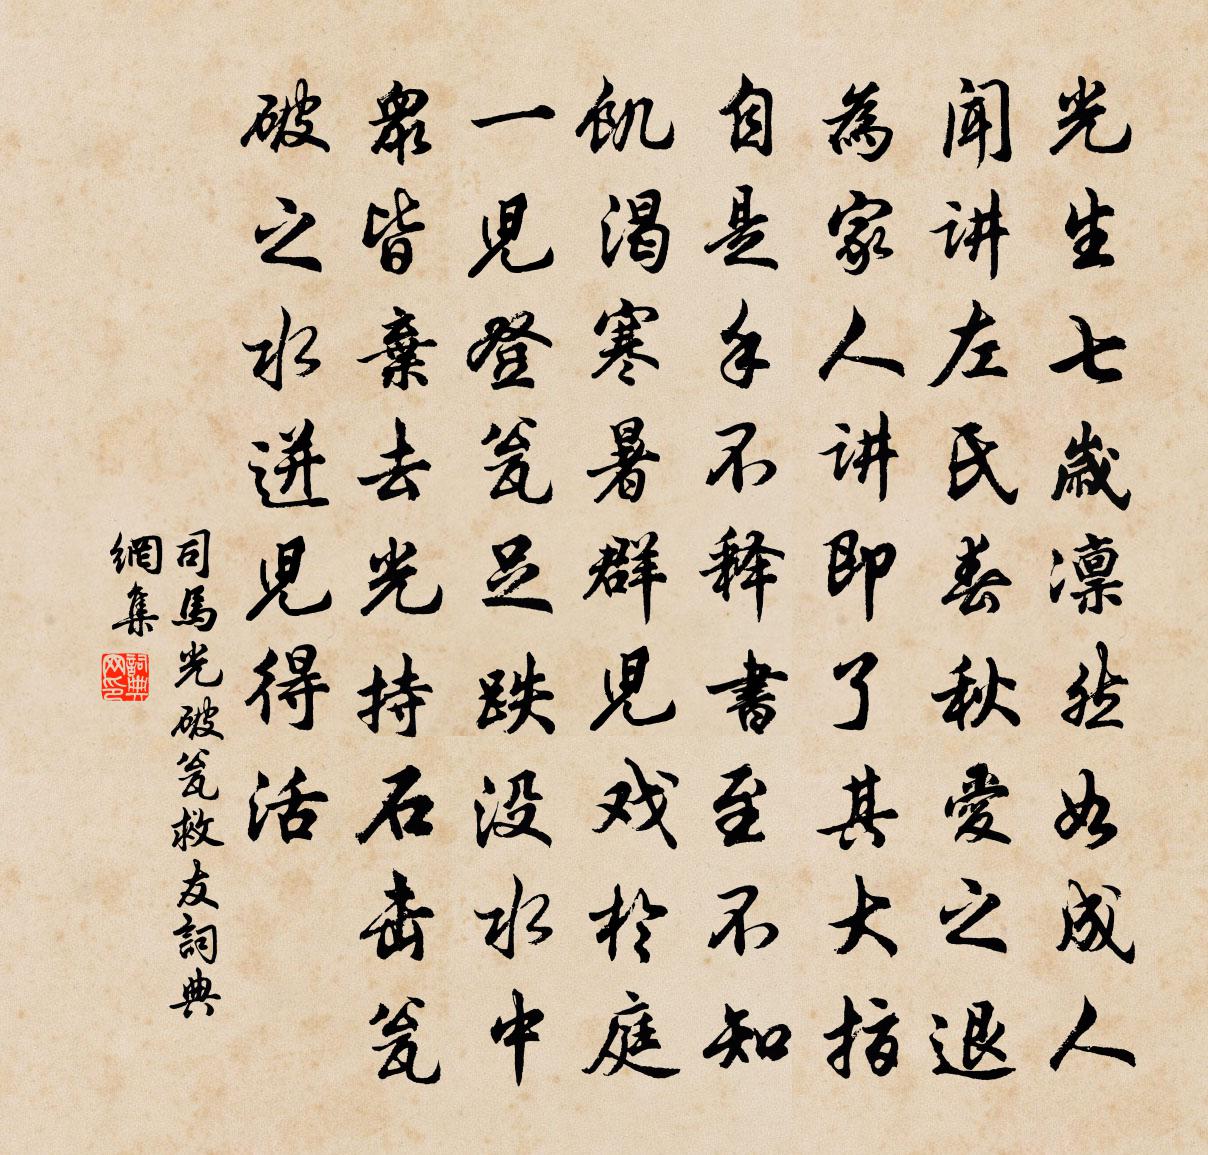 光生七歲凛然如成人
闻讲左氏春秋愛之退
為家人讲即了其大指
自是手不释書至不知
飢渴寒暑群児戏於庭
一児登瓮足跌没水中
眾皆棄去光持石击瓮
破之水迸児得活
司馬光破瓮救友詞典
網集
詞典网印